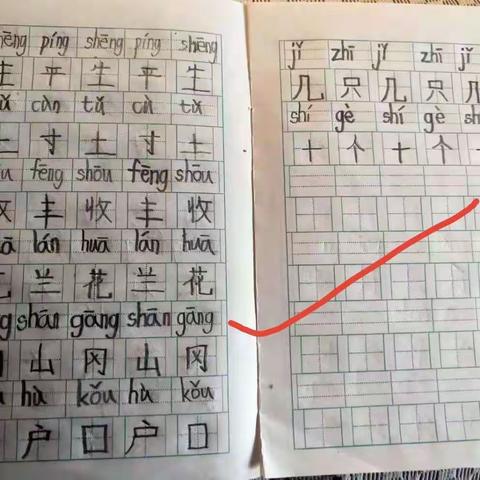 píng shēng píng shēng
生 平 生 平 生
cùn tǔ cù tǔ
土 寸 土 寸 土
fēng shōu fēng shōu
丰 收 丰 收
lán huā lán huā
兰 花 兰 花
shān gāng shān gāng
山 冈 山 冈
hù kǒu hù kǒu
户 口 户 口
jǐ zhī jǐ zhī jǐ
几 只 几 只 几
shí gè shí gè
十 个 十 个